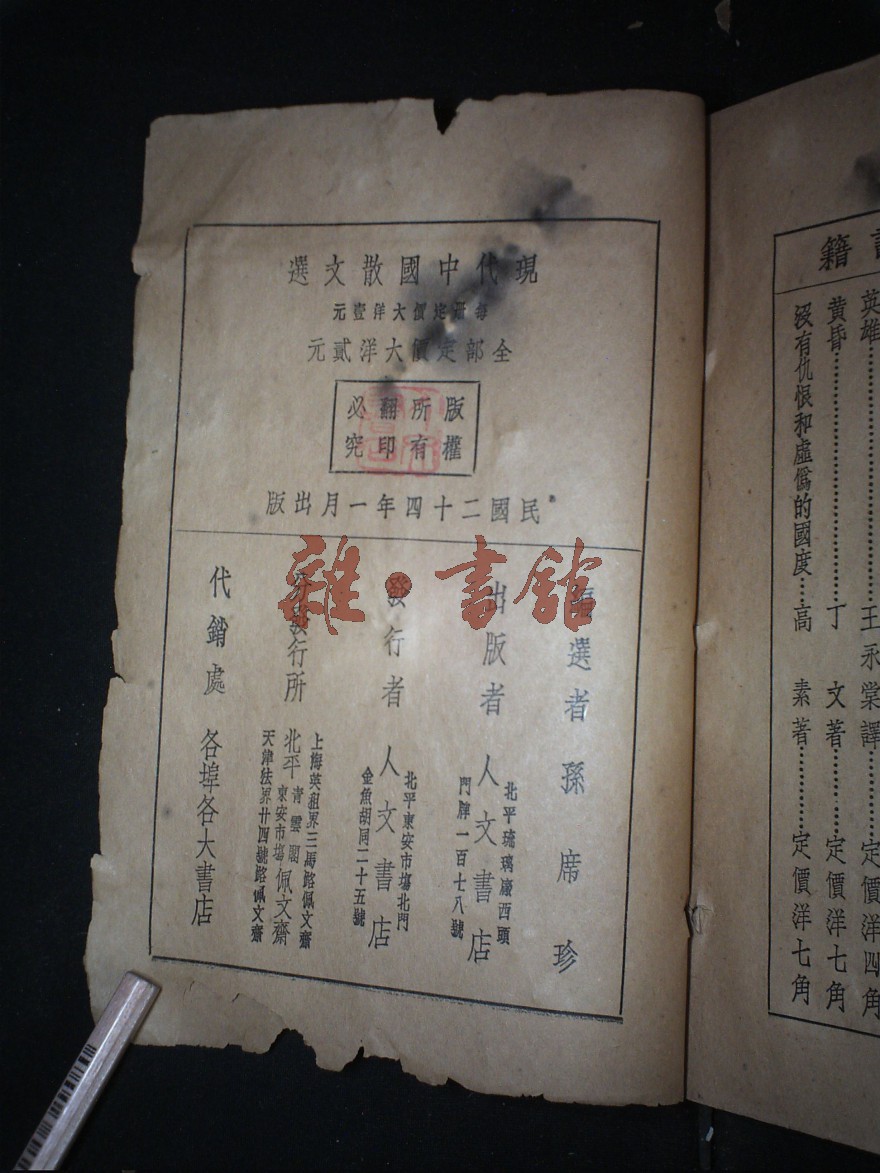 現代中國散文選
每冊定價大洋壹元
全部定價大洋貳元
版權所有翻印必究
民國二十四年一月出版
編選者 孫席珍
出版者 人文書店
北平琉璃廠西頭
門牌一百七八號
發行者 人文書店
北平東安市場北門
金魚胡同二十五號
分發行所
上海英租界三馬路佩文齋
北平青雲閣東安市場佩文齋
天津法界廿四號路佩文齋
代銷處 各埠各大書店
雜·書館
書籍
英雄 王永棠譯 定價洋四角
黃昏 丁文著 定價洋七角
沒有仇恨和虛僞的國度 高素著 定價洋七角